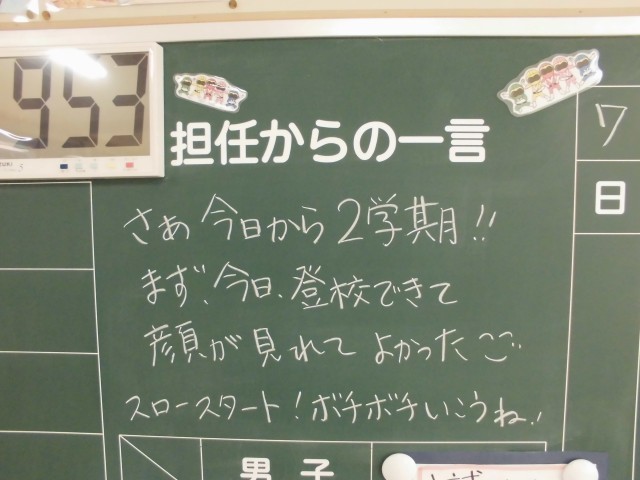 953
担任からの一言
7
日
さあ 今日から2学期!!
まず、今日、登校できて
顔が見れて よかった
スロースタート!ボチボチいこうね!!
男子